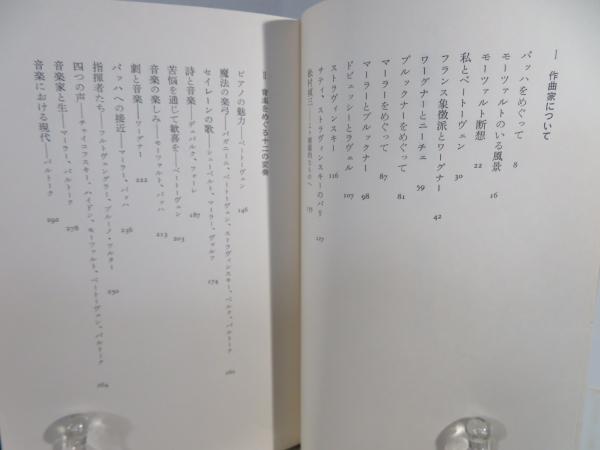 I 作曲家について
バッハをめぐって 8
モーツァルトのいる風景 16
モーツァルト断想 22
私とベートーヴェン 30
フランス象徴派とワーグナー 42
ワーグナーとニーチェ 59
ブルックナーをめぐって 81
マーラーをめぐって 87
マーラーとブルックナー 98
ドビュッシーとラヴェル 107
ストラヴィンスキー 116
サティ、ストラヴィンスキーのパリ 127
松村禎三
II 音楽をめぐる十二の変奏
ピアノの魅力——ベートーヴェン 146
魔法の楽弓——パガニーニ、ベートーヴェン、ストラヴィンスキー、ベルク、バルトーク 160
セイレーンの歌——シューベルト、マーラー、ヴォルフ 174
詩と音楽——デュパルク、フォーレ 187
苦悩を通じて歓喜を——ベートーヴェン 203
音楽の楽しみ——モーツァルト、バッハ 213
劇と音楽——ワーグナー 222
バッハへの接近——マーラー、バッハ 236
指揮者たち——フルトヴェングラー、ブルーノ・ワルター 250
四つの声——チャイコフスキー、ハイドン、モーツァルト、ベートーヴェン、バルトーク 264
音楽家と生——マーラー、バルトーク 278
音楽における現代——バルトーク 292